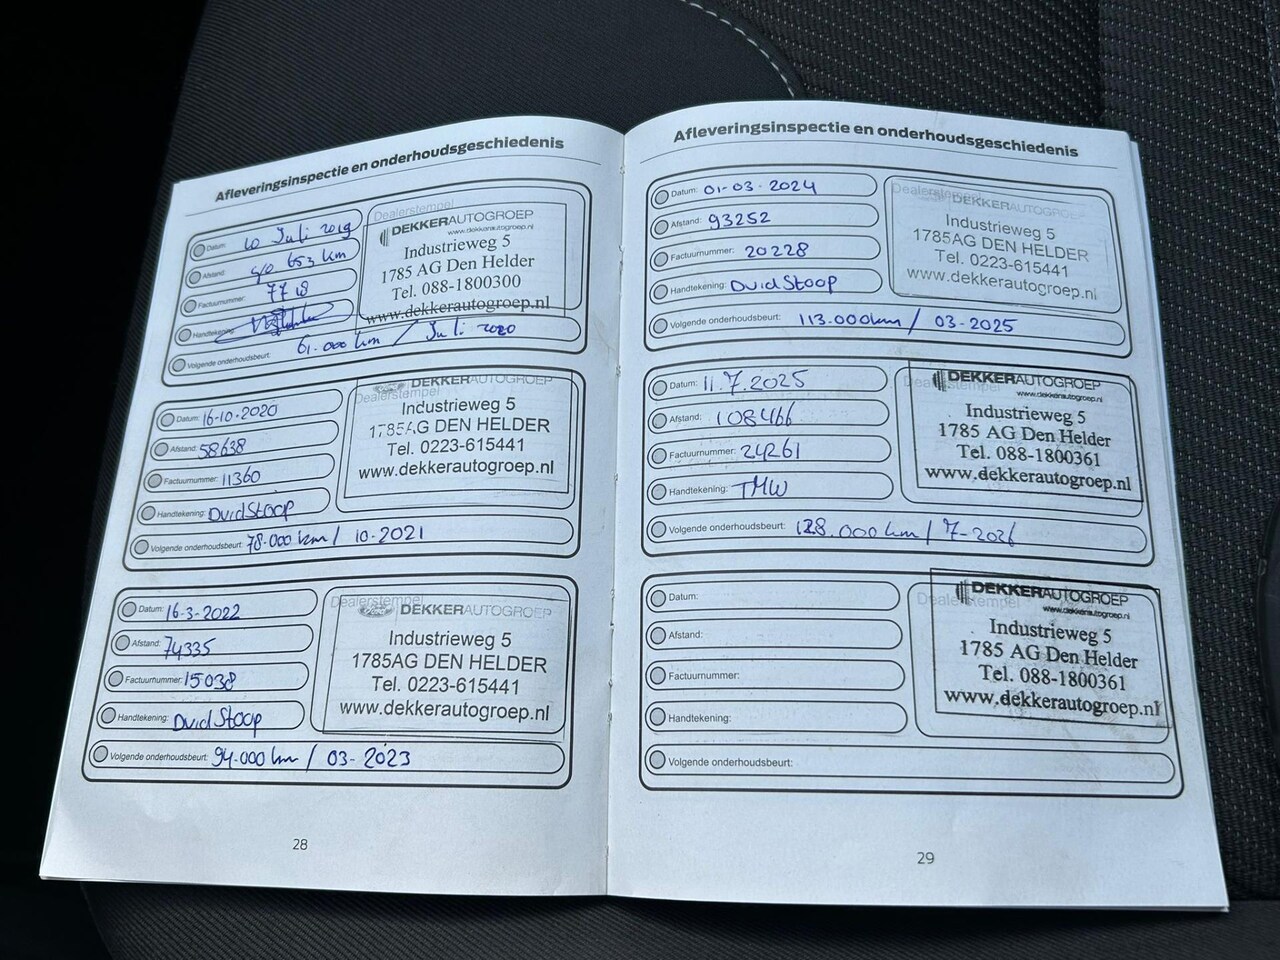 Afleveringsinspectie en onderhoudsgeschiedenis
Datum: 10 Juli 2019
Afstand: 40 653 km
Factuurnummer: 7718
Handtekening:
Volgende onderhoudsbeurt: 61.000 km / Juli 2020
Dealerstempel
DEKKERAUTOGROEP
www.dekkerautogroep.nl
Industrieweg 5
1785 AG Den Helder
Tel. 088-1800300
www.dekkerautogroep.nl
Datum: 16-10-2020
Afstand: 58638
Factuurnummer: 11360
Handtekening: DvidStoop
Volgende onderhoudsbeurt: 78.000 km / 10-2021
Dealerstempel
DEKKERAUTOGROEP
Industrieweg 5
1785AG DEN HELDER
Tel. 0223-615441
www.dekkerautogroep.nl
Datum: 16-3-2022
Afstand: 74335
Factuurnummer: 15038
Handtekening: DvidStoop
Volgende onderhoudsbeurt: 94.000 km / 03-2023
Dealerstempel
DEKKERAUTOGROEP
Industrieweg 5
1785AG DEN HELDER
Tel. 0223-615441
www.dekkerautogroep.nl
28
Afleveringsinspectie en onderhoudsgeschiedenis
Datum: 01-03-2024
Afstand: 93252
Factuurnummer: 20228
Handtekening: DvidStoop
Volgende onderhoudsbeurt: 113.000km / 03-2025
Dealerstempel
DEKKERAUTOGROEP
Industrieweg 5
1785AG DEN HELDER
Tel. 0223-615441
www.dekkerautogroep.nl
Datum: 11.7.2025
Afstand: 108466
Factuurnummer: 24261
Handtekening: TMW
Volgende onderhoudsbeurt: 128.000km / 7-2026
Dealerstempel
DEKKERAUTOGROEP
www.dekkerautogroep.nl
Industrieweg 5
1785 AG Den Helder
Tel. 088-1800361
www.dekkerautogroep.nl
Datum:
Afstand:
Factuurnummer:
Handtekening:
Volgende onderhoudsbeurt:
Dealerstempel
DEKKERAUTOGROEP
www.dekkerautogroep.nl
Industrieweg 5
1785 AG Den Helder
Tel. 088-1800361
www.dekkerautogroep.nl
29